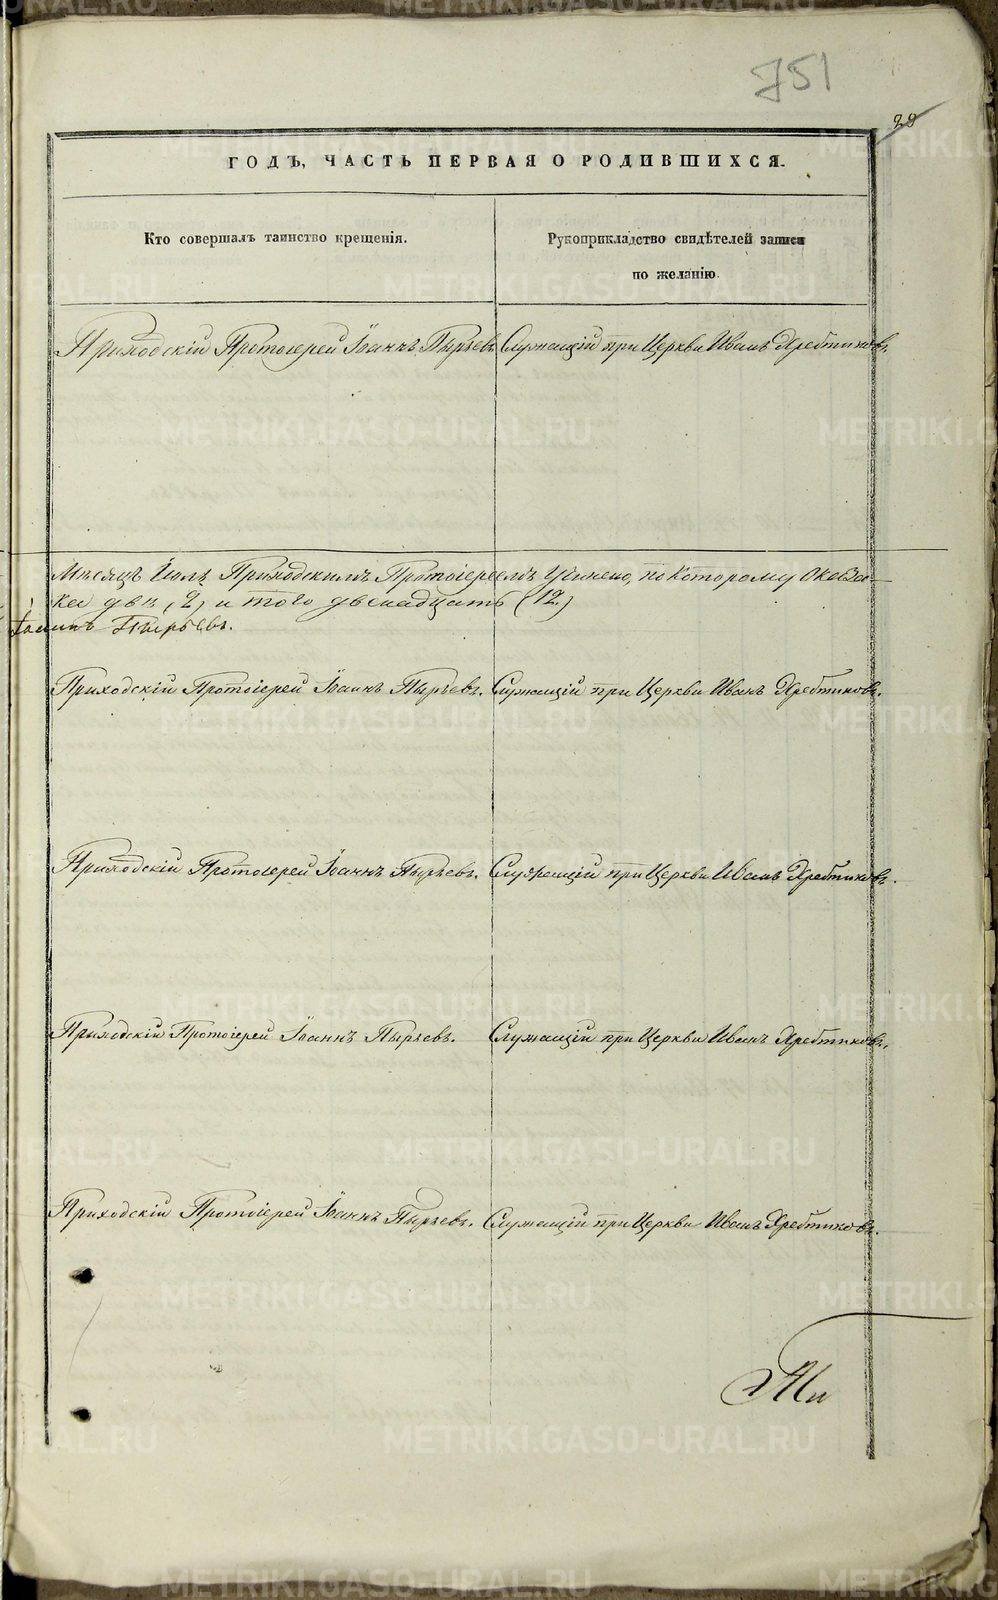 751
28
ГОДЪ, ЧАСТЬ ПЕРВАЯ О РОДИВШИХСЯ.
Кто совершалъ таинство крещенія.
Рукоприкладство свидѣтелей записи
по желанію.
Приходскій Протоіерей Іоаннъ Пырьевъ. Служащій при Церкви Иванъ Хребтиковъ.
Мѣсяцъ Іюль Приходскимъ Протоіереемъ Учинено, по которому
два, (2) и того двенадцать (12.)
Іоаннъ Пырьевъ.
Приходскій Протоіерей Іоаннъ Пырьевъ. Служащій при Церкви Иванъ Хребтиковъ.
Приходскій Протоіерей Іоаннъ Пырьевъ. Служащій при Церкви Иванъ Хребтиковъ.
Приходскій Протоіерей Іоаннъ Пырьевъ. Служащій при Церкви Иванъ Хребтиковъ.
Приходскій Протоіерей Іоаннъ Пырьевъ. Служащій при Церкви Иванъ Хребтиковъ.
METRIKI.GASO-URAL.RU